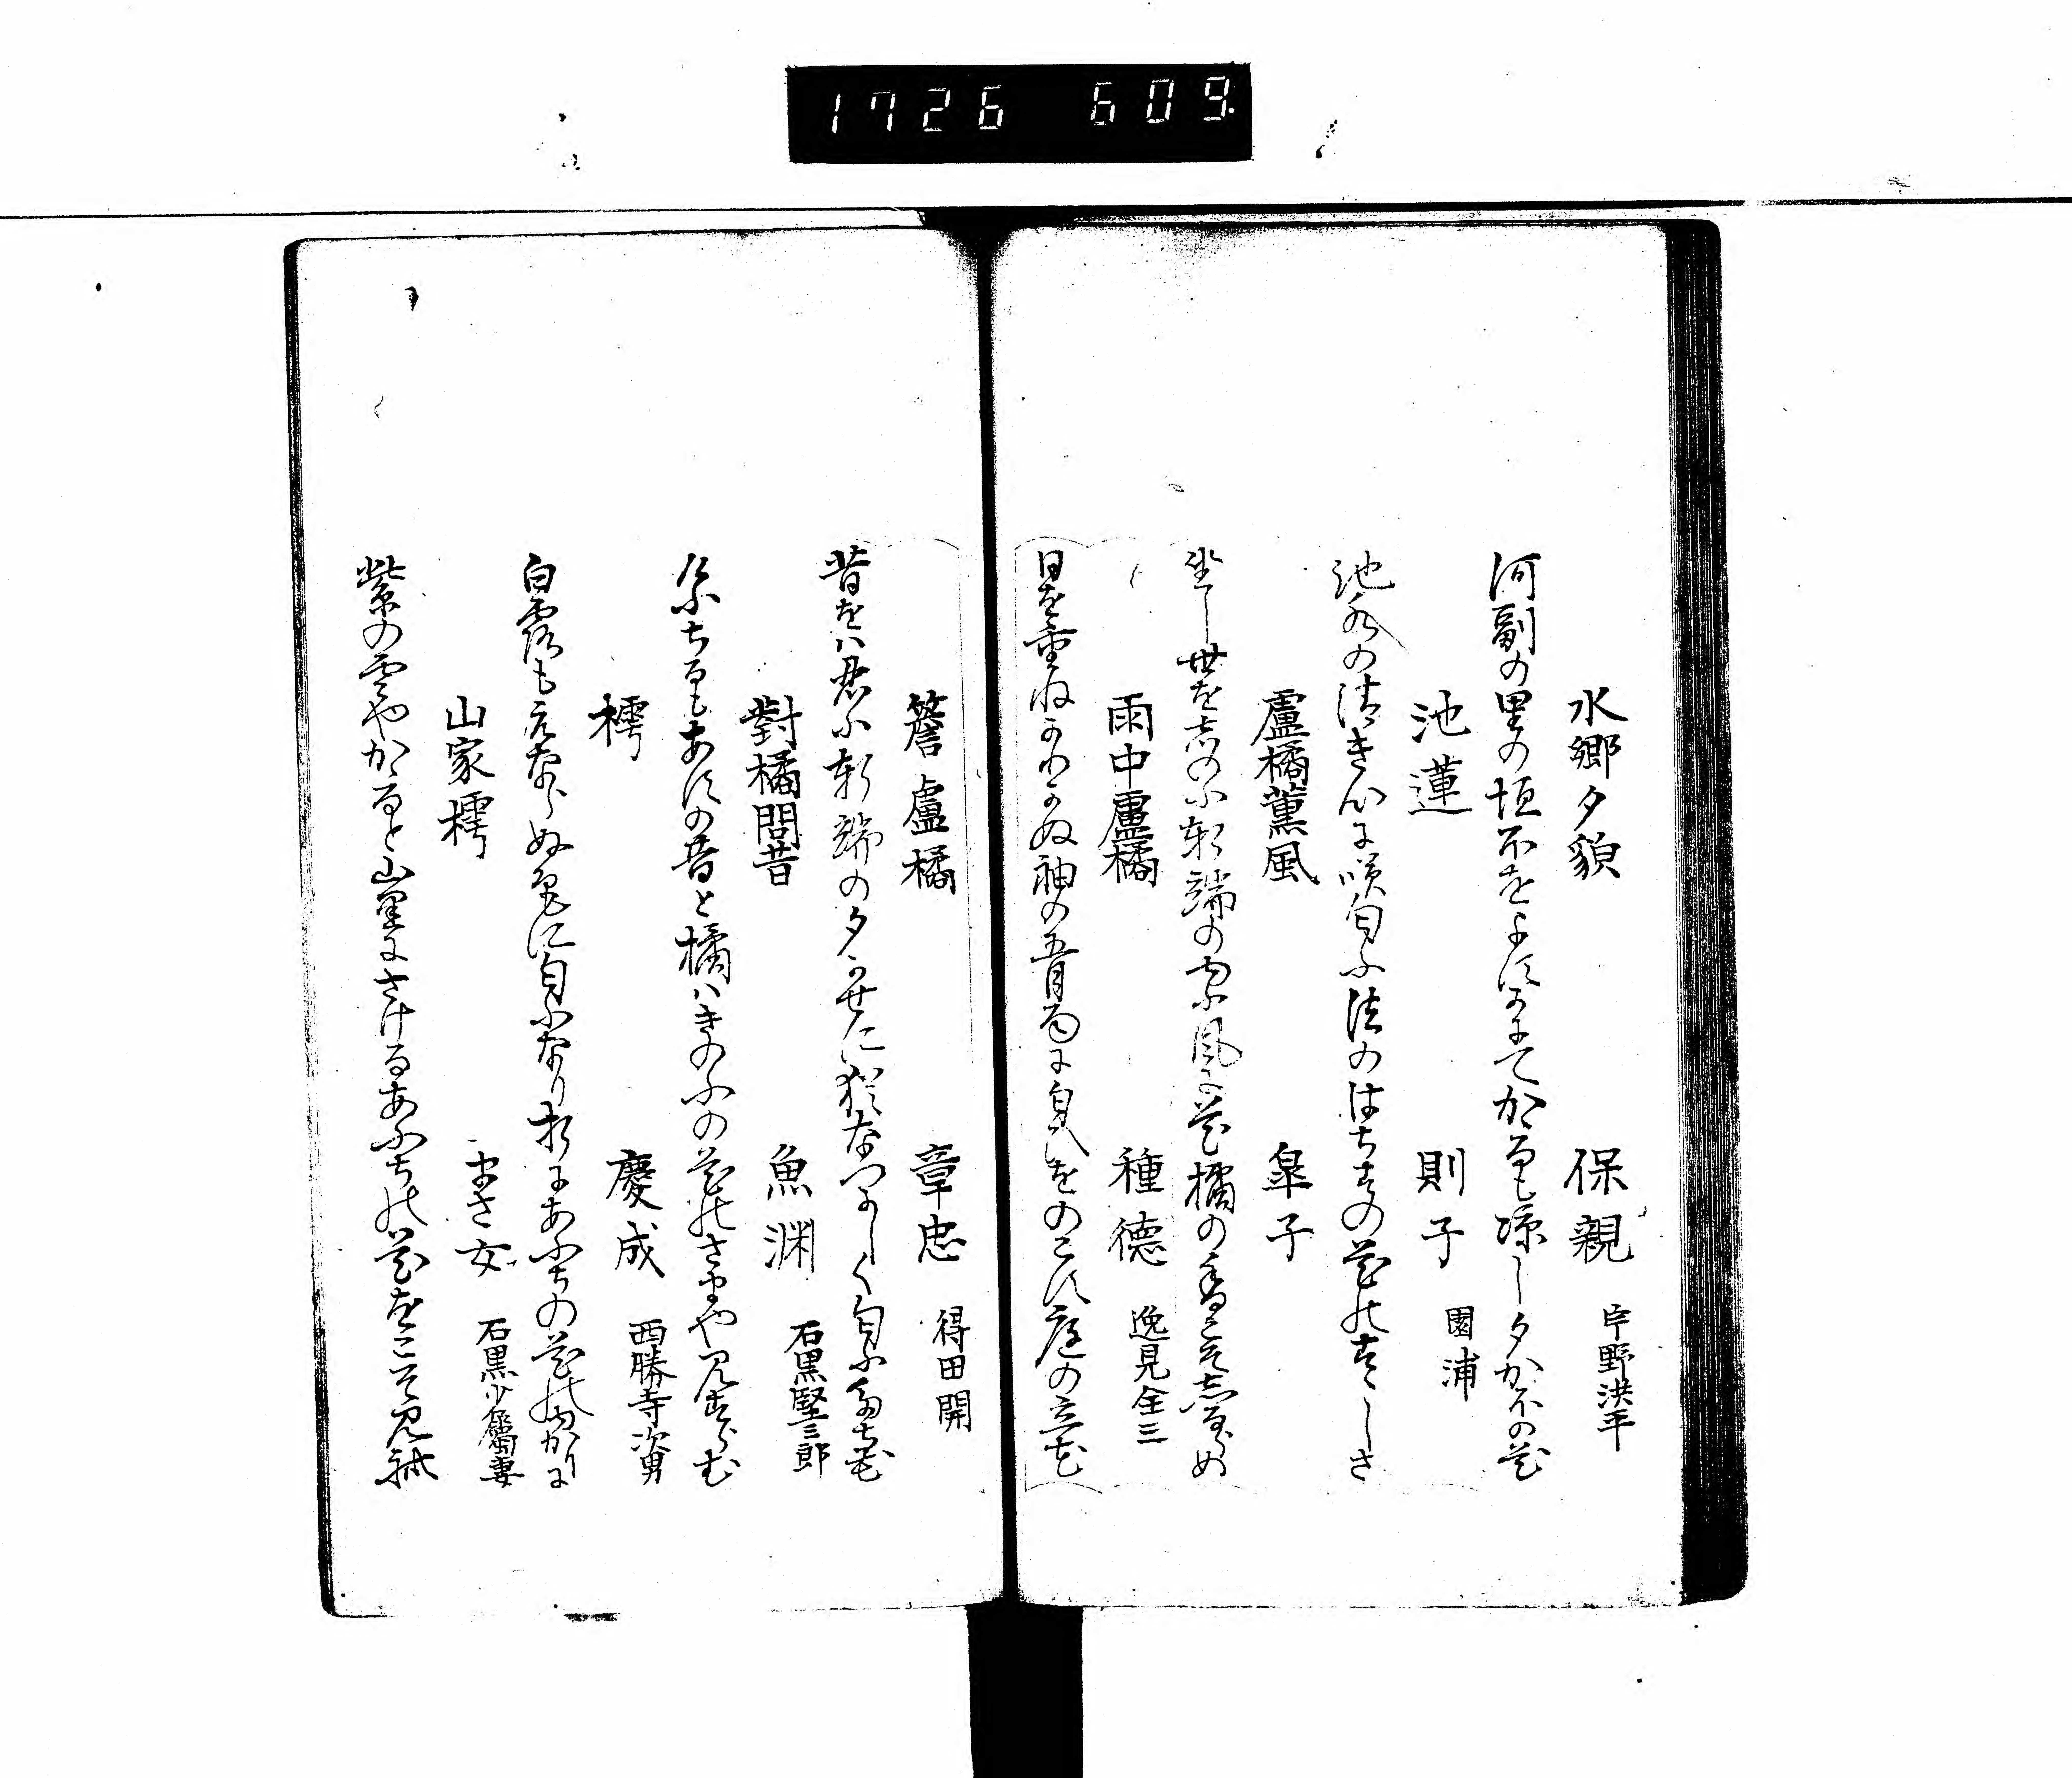 1726 609
水郷夕貌 保親 臼野洪平
河副の里の垣不をよすかにてかゝるも凉し夕かほの花
池蓮 則子 園浦
池水の清き心に咲匂ふ法のはちすの花のすゝしさ
盧橘薫風 皐子
坐し世を志のふ軒端の風に花橘の香こそ志るらめ
雨中盧橘 種徳 逸見全三
日を重ねかわかぬ袖の五月雨に匂をのこす庭の立花
簷盧橘 章忠 得田開
昔をハ君小軒端の夕かせに猶なつかしく匂ふたち花
對橘問昔 魚渊 石黒堅三郎
とふちるもあすの昔と橘ハきのふの花のさまや見すらむ
樗 慶成 西勝寺次男
白露もえならぬ色に匂ふなり折にあふちの花のゆかりに
山家樗 まさ女 石黒少属妻
紫の雲やかゝると山里にさけるあふちの花をこそ見れ